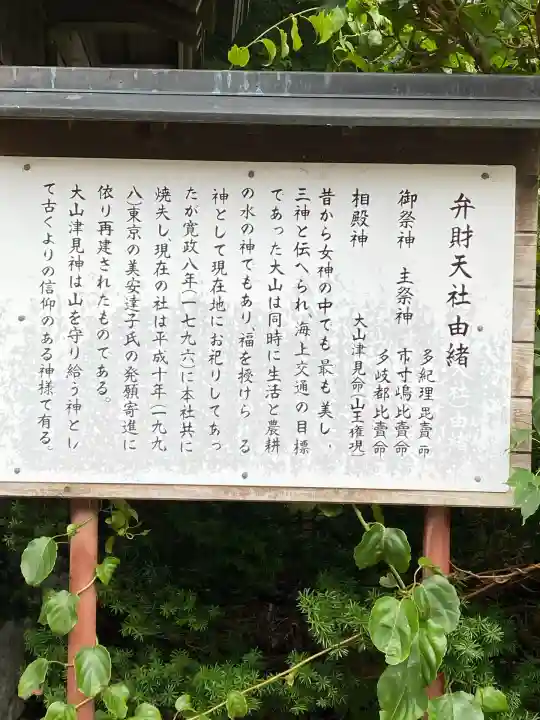 弁財天社由緒
多紀理毘賣命
御祭神 主祭神 市寸嶋比賣命
多岐都比賣命
相殿神 大山津見命(山王権現)
昔から女神の中でも最も美し、
三神と伝へられ、海上交通の目標
であった大山は同時に生活と農耕
の水の神でもあり、福を授けら る
神として現在地にお祀りしてあっ
たが寛政八年(一七九六)に本社共に
焼失し、現在の社は平成十年(一九九
八)東京の美安達子氏の発願寄進に
依り再建されたものである。
大山津見神は山を守り給う神とし
て古くよりの信仰のある神様て有る。